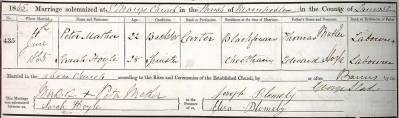 1865 Marriage solemnized at St Marys Church in the Parish of Manchester in the County of Lancaster
When Married. Name and Surname. Age. Condition. Rank or Profession. Residence at the time of Marriage. Father's Name and Surname. Rank or Profession of Father.
435
4th June 1865
Peter Mather 22 Bachelor Carter Blackfriars Thomas Mather Labourer
Sarah Hoyle 25 Spinster Cheetham Edward Hoyle Labourer
Married in the above Church according to the Rites and Ceremonies of the Established Church, by or after Banns by me,
This Marriage was solemnized between us, Peter Mather
Sarah Hoyle
in the Presence of us, Joseph Blomely
Blomely